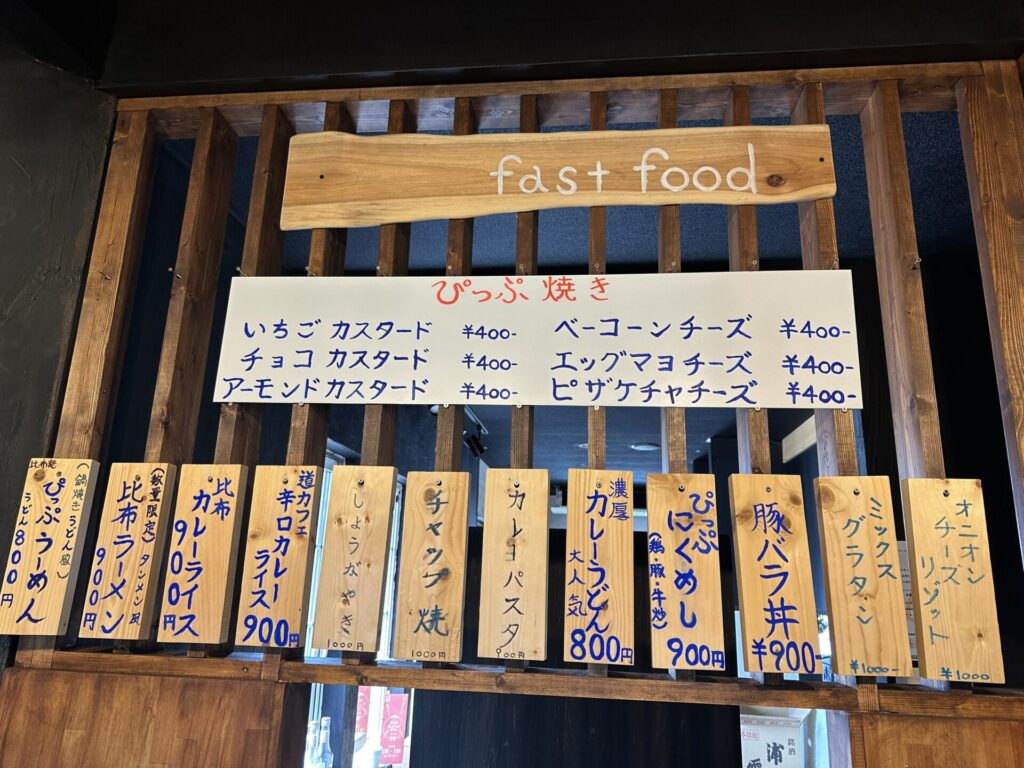 fast food
ぴっぷ焼き
いちごカスタード ¥400-
チョコカスタード ¥400-
アーモンドカスタード ¥400-
ベーコーンチーズ ¥400-
エッグマヨチーズ ¥400-
ピザケチャチーズ ¥400-
(鍋焼きうどん風)
ぴっぷうーめん
うどん800円
(数量限定)タンメン風
比布ラーメン
900円
比布
カレーライス
900円
道カフェ
辛口カレー
ライス
900円
しょうがやき
1000円
チャップ焼
1000円
カレーパスタ
900円
濃厚
カレーうどん
大人気
800円
ぴっぷ
にくめし
(鶏・豚・牛炒)
900円
豚バラ丼
¥900-
ミックス
グラタン
¥1000-
オニオン
チーズ
リゾット
¥1000
銘酒